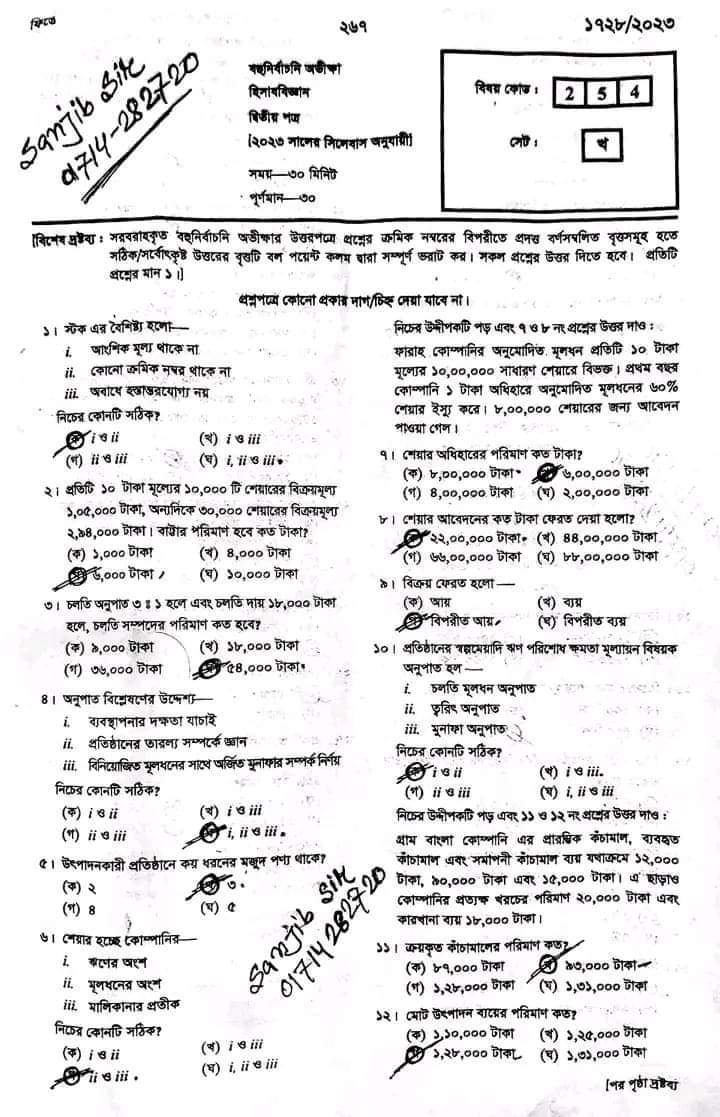 ফিতে
২৬৭
১৭২৮/২০২৩
Sanjib Site
01714-282720
বহুনির্বাচনি অভীক্ষা
হিসাববিজ্ঞান
দ্বিতীয় পত্র
[২০২৩ সালের সিলেবাস অনুযায়ী]
সময়—৩০ মিনিট
পূর্ণমান—৩০
বিষয় কোড : 2 5 4
সেট : খ
[বিশেষ দ্রষ্টব্য : সরবরাহকৃত বহুনির্বাচনি অভীক্ষার উত্তরপত্রে প্রশ্নের ক্রমিক নম্বরের বিপরীতে প্রদত্ত বর্ণসম্বলিত বৃত্তসমূহ হতে
সঠিক/সর্বোৎকৃষ্ট উত্তরের বৃত্তটি বল পয়েন্ট কলম দ্বারা সম্পূর্ণ ভরাট কর। সকল প্রশ্নের উত্তর দিতে হবে। প্রতিটি
প্রশ্নের মান ১।]
প্রশ্নপত্রে কোনো প্রকার দাগ/চিহ্ন দেয়া যাবে না।
১। স্টক এর বৈশিষ্ট্য হলো—
i. আংশিক মূল্য থাকে না
ii. কোনো ক্রমিক নম্বর থাকে না
iii. অবাধে হস্তান্তরযোগ্য নয়
নিচের কোনটি সঠিক?
(ক) i ও ii (খ) i ও iii
(গ) ii ও iii (ঘ) i, ii ও iii
২। প্রতিটি ১০ টাকা মূল্যের ১০,০০০ টি শেয়ারের বিক্রয়মূল্য
১,০৫,০০০ টাকা, অন্যদিকে ৩০,০০০ শেয়ারের বিক্রয়মূল্য
২,৯৪,০০০ টাকা। বাট্টার পরিমাণ হবে কত টাকা?
(ক) ১,০০০ টাকা (খ) ৪,০০০ টাকা
৬,০০০ টাকা (ঘ) ১০,০০০ টাকা
৩। চলতি অনুপাত ৩ ঃ ১ হলে এবং চলতি দায় ১৮,০০০ টাকা
হলে, চলতি সম্পদের পরিমাণ কত হবে?
(ক) ৯,০০০ টাকা (খ) ১৮,০০০ টাকা
(গ) ৩৬,০০০ টাকা ৫৪,০০০ টাকা
৪। অনুপাত বিশ্লেষণের উদ্দেশ্য—
i. ব্যবস্থাপনার দক্ষতা যাচাই
ii. প্রতিষ্ঠানের তারল্য সম্পর্কে জ্ঞান
iii. বিনিয়োজিত মূলধনের সাথে অর্জিত মুনাফার সম্পর্ক নির্ণয়
নিচের কোনটি সঠিক?
(ক) i ও ii (খ) i ও iii
(গ) ii ও iii i, ii ও iii
৫। উৎপাদনকারী প্রতিষ্ঠানে কয় ধরনের মজুদ পণ্য থাকে?
(ক) ২ ৩
(গ) ৪ (ঘ) ৫
৬। শেয়ার হচ্ছে কোম্পানির—
i. ঋণের অংশ
ii. মূলধনের অংশ
iii. মালিকানার প্রতীক
নিচের কোনটি সঠিক?
(ক) i ও ii (খ) i ও iii
ii ও iii (ঘ) i, ii ও iii
Sanjib Site
01714282720
নিচের উদ্দীপকটি পড় এবং ৭ ও ৮ নং প্রশ্নের উত্তর দাও :
ফারাহ কোম্পানির অনুমোদিত মূলধন প্রতিটি ১০ টাকা
মূল্যের ১০,০০,০০০ সাধারণ শেয়ারে বিভক্ত। প্রথম বছর
কোম্পানি ১ টাকা অধিহারে অনুমোদিত মূলধনের ৬০%
শেয়ার ইস্যু করে। ৮,০০,০০০ শেয়ারের জন্য আবেদন
পাওয়া গেল।
৭। শেয়ার অধিহারের পরিমাণ কত টাকা?
(ক) ৮,০০,০০০ টাকা ৬,০০,০০০ টাকা
(গ) ৪,০০,০০০ টাকা (ঘ) ২,০০,০০০ টাকা
৮। শেয়ার আবেদনের কত টাকা ফেরত দেয়া হলো?
২২,০০,০০০ টাকা (খ) ৪৪,০০,০০০ টাকা
(গ) ৬৬,০০,০০০ টাকা (ঘ) ৮৮,০০,০০০ টাকা
৯। বিক্রয় ফেরত হলো—
(ক) আয় (খ) ব্যয়
বিপরীত আয় (ঘ) বিপরীত ব্যয়
১০। প্রতিষ্ঠানের স্বল্পমেয়াদি ঋণ পরিশোধ ক্ষমতা মূল্যায়ন বিষয়ক
অনুপাত হল—
i. চলতি মূলধন অনুপাত
ii. ত্বরিৎ অনুপাত
iii. মুনাফা অনুপাত
নিচের কোনটি সঠিক?
i ও ii (খ) i ও iii.
(গ) ii ও iii (ঘ) i, ii ও iii
নিচের উদ্দীপকটি পড় এবং ১১ ও ১২ নং প্রশ্নের উত্তর দাও :
গ্রাম বাংলা কোম্পানি এর প্রারম্ভিক কাঁচামাল, ব্যবহৃত
কাঁচামাল এবং সমাপনী কাঁচামাল ব্যয় যথাক্রমে ১২,০০০
টাকা, ৯০,০০০ টাকা এবং ১৫,০০০ টাকা। এ ছাড়াও
কোম্পানির প্রত্যক্ষ খরচের পরিমাণ ২০,০০০ টাকা এবং
কারখানা ব্যয় ১৮,০০০ টাকা।
১১। ক্রয়কৃত কাঁচামালের পরিমাণ কত?
(ক) ৮৭,০০০ টাকা ৯৩,০০০ টাকা
(গ) ১,২৮,০০০ টাকা (ঘ) ১,৩১,০০০ টাকা
১২। মোট উৎপাদন ব্যয়ের পরিমাণ কত?
(ক) ১,১০,০০০ টাকা (খ) ১,২৫,০০০ টাকা
১,২৮,০০০ টাকা (ঘ) ১,৩১,০০০ টাকা
[পর পৃষ্ঠা দ্রষ্টব্য